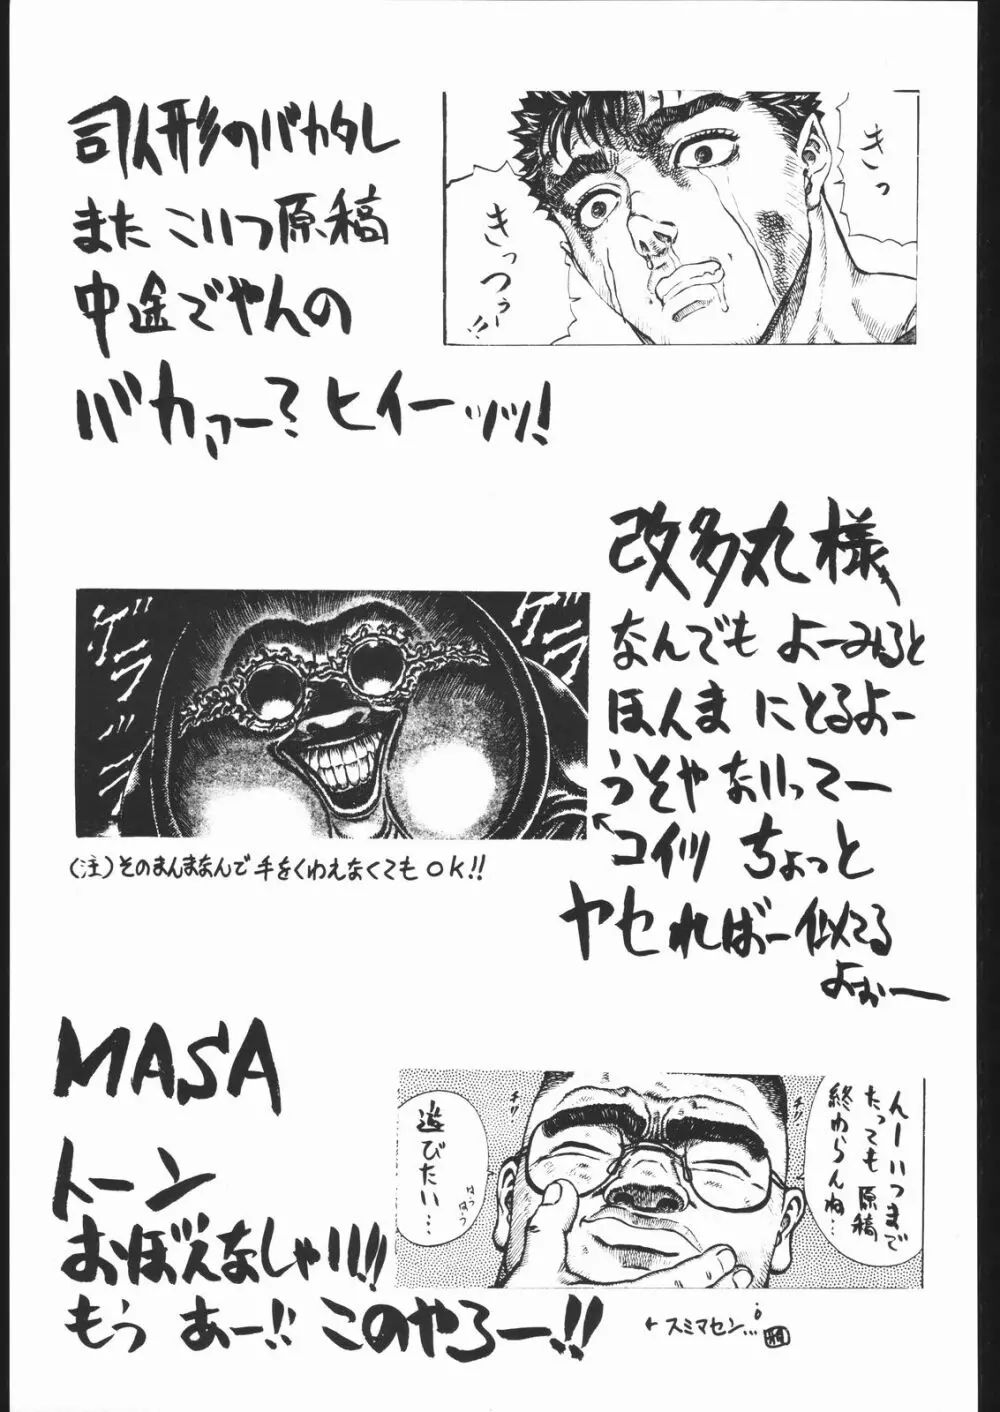 司人形のバカタレ
また こいつ原稿
中途でやんの
バカァー? ヒイーッッ!
きっ
きっつぅー!!
改多丸様
なんでも よーみると
ほんま にとるよー
うそや ないってー
コイツ ちょっと
ヤセればー似てる
よぉー
ゲラ
ゲラ
(注)そのまんまなんで手をくわえなくてもOK!!
MASA
トーン
おぼえなしゃい!!
もう あー!! このやろー!!
んーいつまで
たっても原稿
終わらんね…
遊びたい…
はぅ
はぅ
←スミマセン…